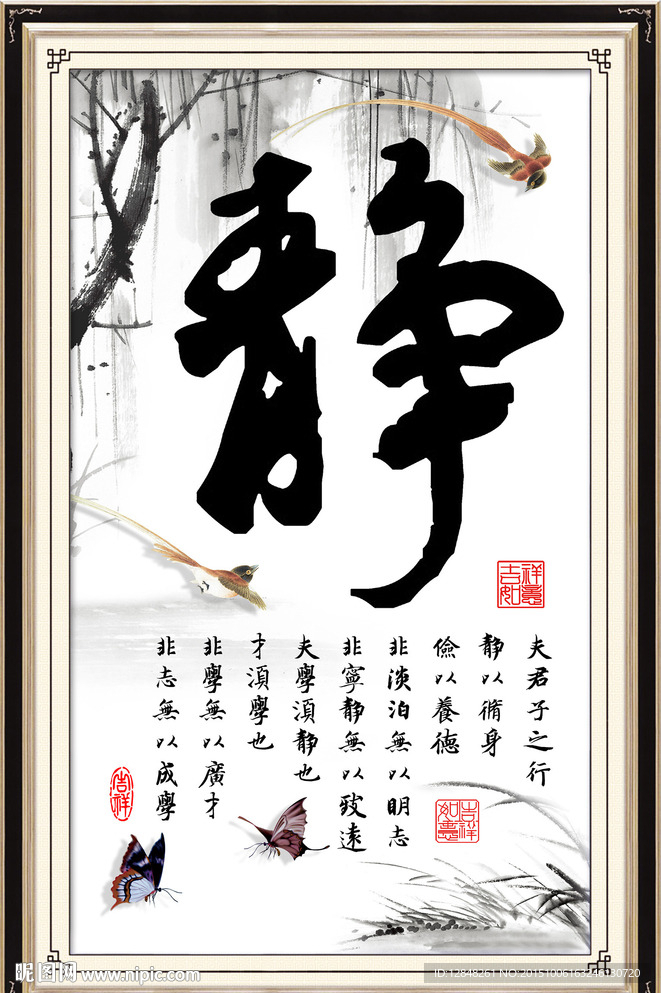 静
吉祥
如意
夫君子之行
静以脩身
儉以養德
非淡泊無以明志
非寧静無以致遠
夫學須静也
才須學也
非學無以廣才
非志無以成學
吉祥
如意
吉祥
昵图网 www.nipic.com
ID:12848261 NO:20151006163246130720